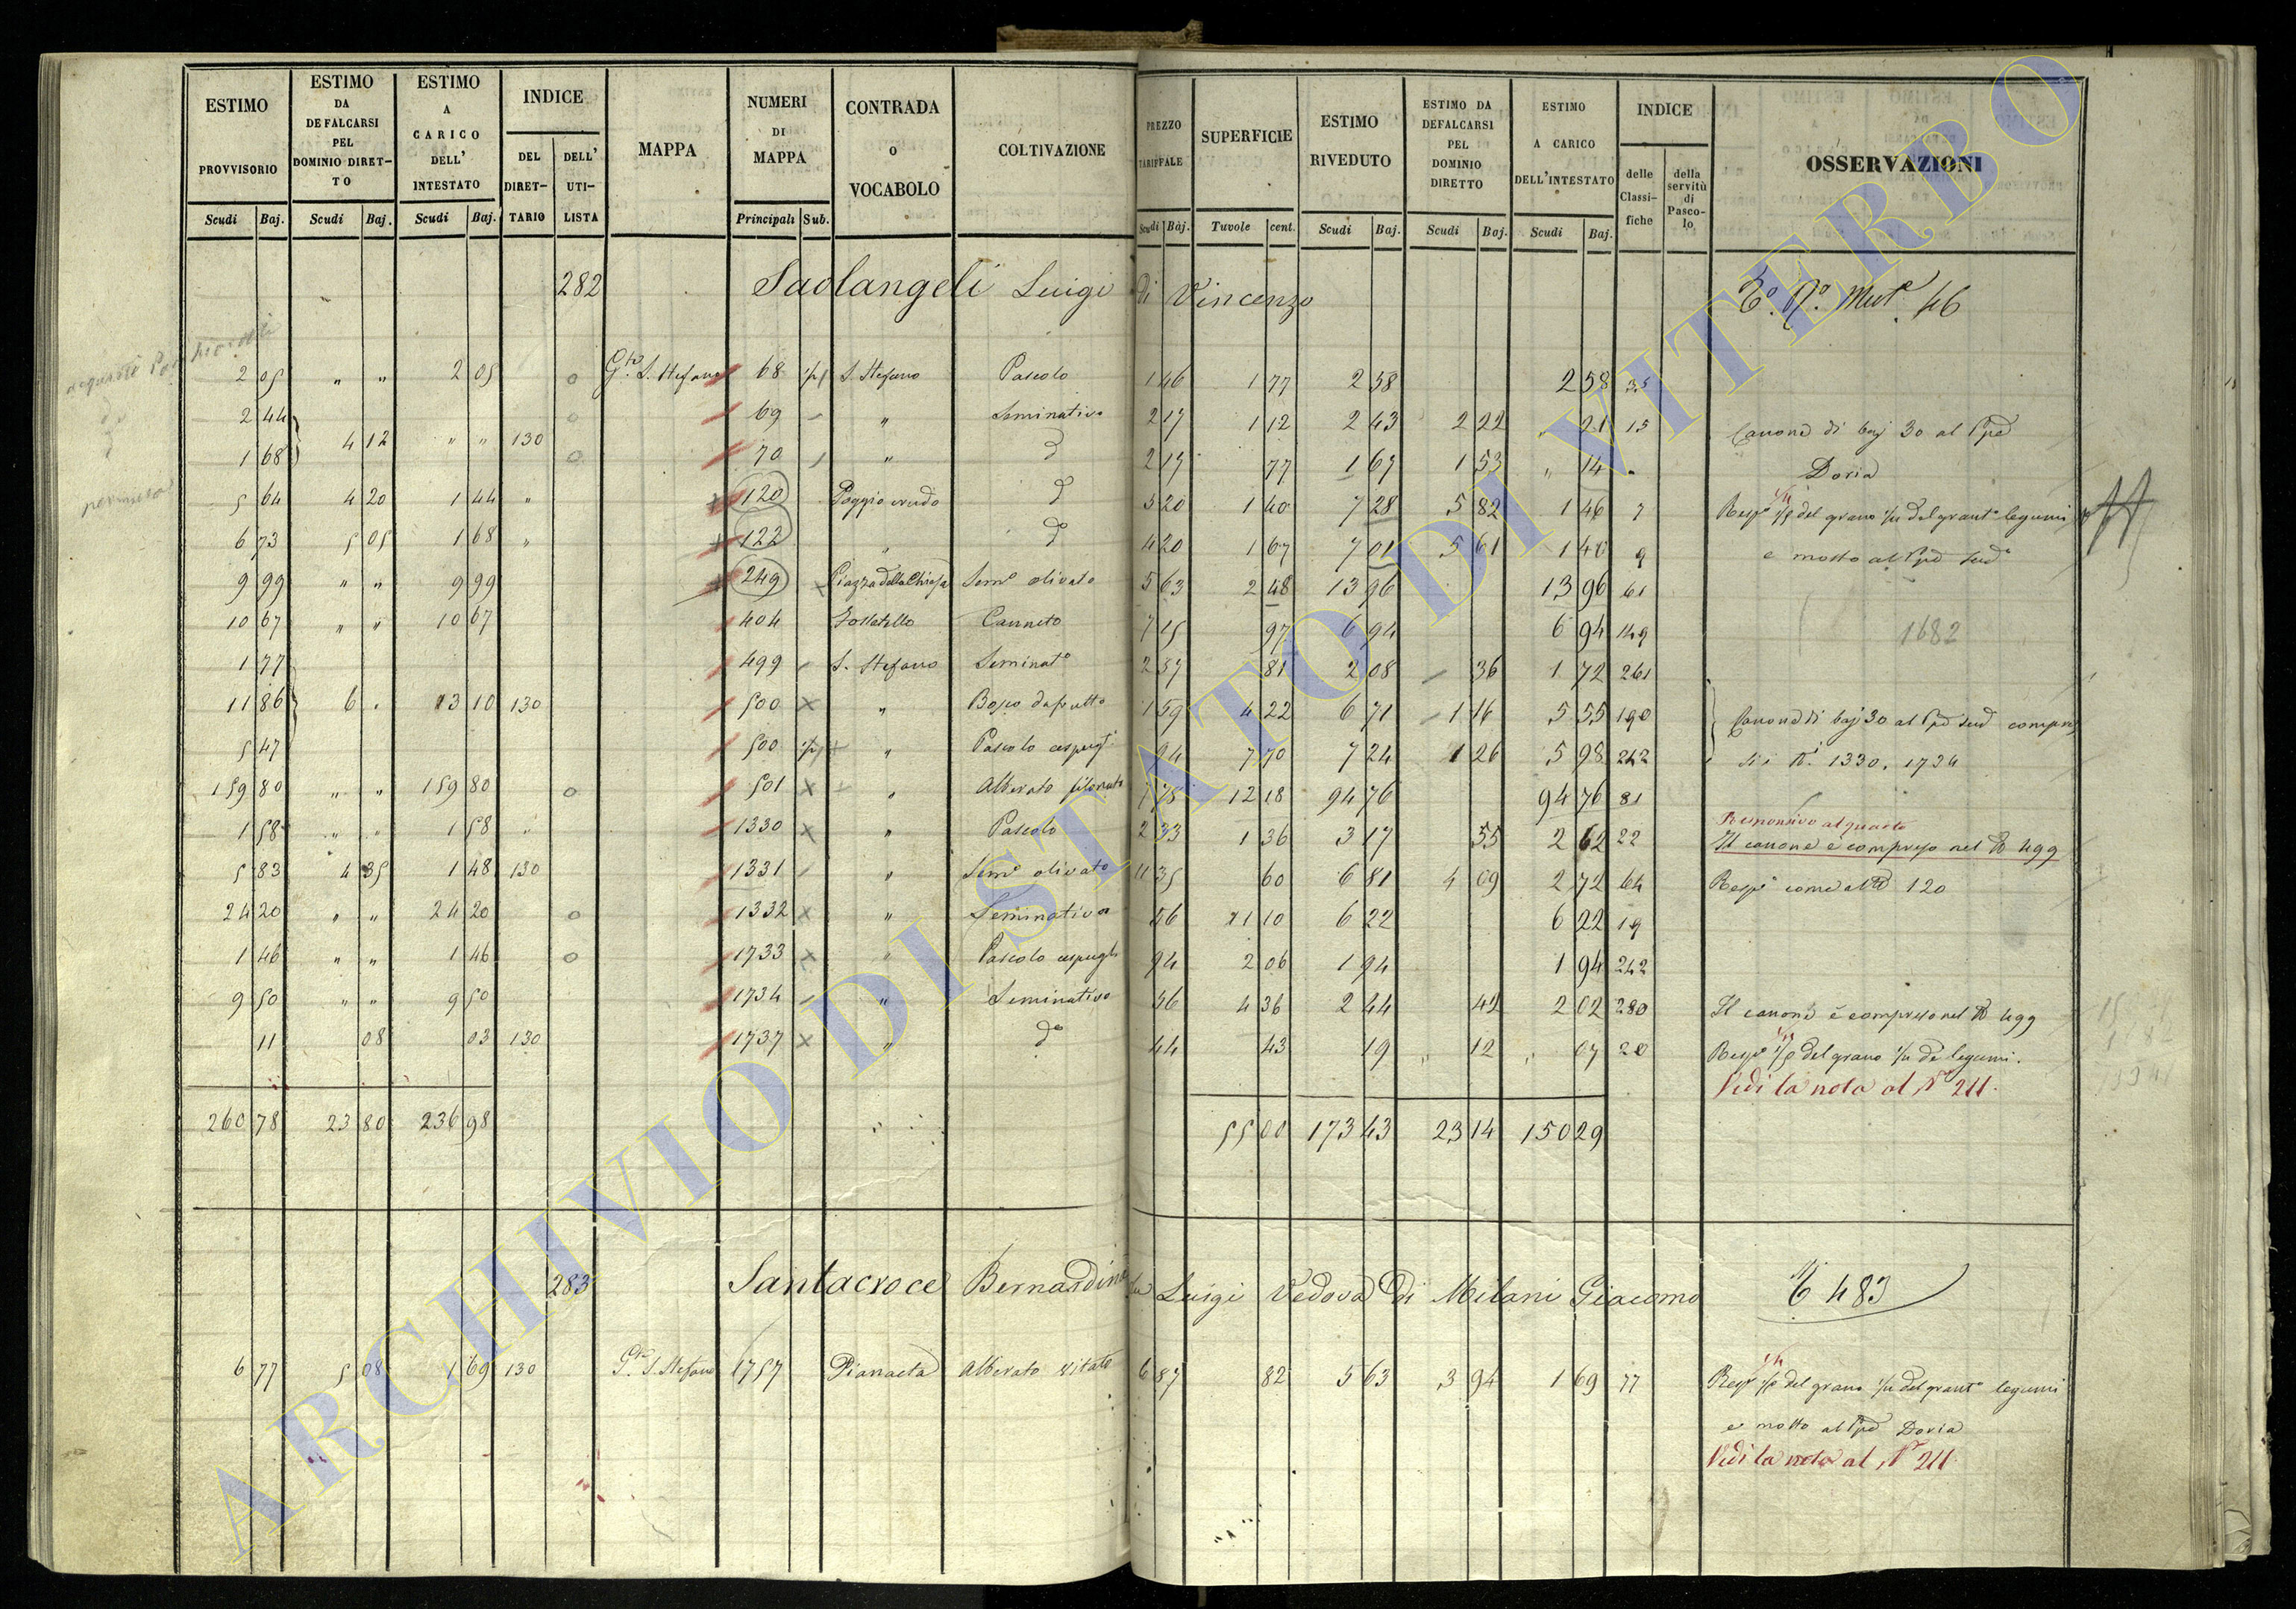 ESTIMO PROVVISORIO Scudi Baj.
ESTIMO DA DEFALCARSI PEL DOMINIO DIRETTO Scudi Baj.
ESTIMO A CARICO DELL' INTESTATO Scudi Baj.
INDICE DEL DIRETTARIO DELL' UTILISTA
MAPPA
NUMERI DI MAPPA Principali Sub.
CONTRADA O VOCABOLO
COLTIVAZIONE
PREZZO TARIFFALE Scudi Baj.
SUPERFICIE Tavole cent.
ESTIMO RIVEDUTO Scudi Baj.
ESTIMO DA DEFALCARSI PEL DOMINIO DIRETTO Scudi Baj.
ESTIMO A CARICO DELL'INTESTATO Scudi Baj.
INDICE delle Classifiche della servitù di Pascolo
OSSERVAZIONI
282 Saolangeli Luigi di Vincenzo 46
2 05 " " 2 05 S. Stefano 68 S. Stefano Pascolo 1 46 1 77 2 58 2 58 35
2 44 69 " Seminativo 2 17 1 12 2 43 2 22 " 21 15 Canone di baj 30 al
4 12 " " 130
1 68 70 " d 2 17 77 1 67 1 53 " 14 " Doria
5 64 4 20 1 44 " 120 Poggio crudo d 5 20 1 40 7 28 5 82 1 46 7 del grano legumi
6 73 5 05 1 68 " 122 " do 4 20 1 67 7 01 5 61 1 40 9 e mosto al
9 99 " " 9 99 249 Piazza della Chiesa Semo olivato 5 63 2 48 13 96 13 96 61
10 67 " " 10 67 404 Fossatello Canneto 7 15 97 6 94 6 94 149 1682
1 77 499 S. Stefano Seminato 2 57 81 2 08 36 1 72 261
11 86 6 . 13 10 130 500 " Bosco da frutto 1 59 4 22 6 71 1 16 5 55 190 Canone di baj 30 al
5 47 500 " Pascolo 94 7 70 7 24 1 26 5 98 242 1330. 1734
159 80 " " 159 80 501 " Alberato 7 78 12 18 94 76 94 76 81
1 58 " " 1 58 " 1330 " Pascolo 2 33 1 36 3 17 55 2 62 22 Responsivo al quarto
Il canone è compreso nel No 499
5 83 4 35 1 48 130 1331 " Semo olivato 11 35 60 6 81 4 09 2 72 64 come al No 120
24 20 " " 24 20 1332 " Seminativo 56 11 10 6 22 6 22 19
1 46 " " 1 46 1733 " Pascolo 94 2 06 1 94 1 94 242
9 50 " " 9 50 1734 " Seminativo 56 4 36 2 44 42 2 02 280 Il canone è compreso nel No 499
11 08 03 130 1737 " do 44 43 19 " 12 " 07 20 del grano legumi.
Vedi la nota al No 211.
260 78 23 80 236 98 55 00 173 43 23 14 150 29
283 Santacroce Bernardina fu Luigi Vedova di Milani Giacomo 483
6 77 5 08 1 69 130 S. Stefano 1757 Pianaeta Alberato vitato 6 87 82 5 63 3 94 1 69 77 del grano legumi
e mosto al Doria
Vedi la nota al No 211
ARCHIVIO DI STATO DI VITERBO